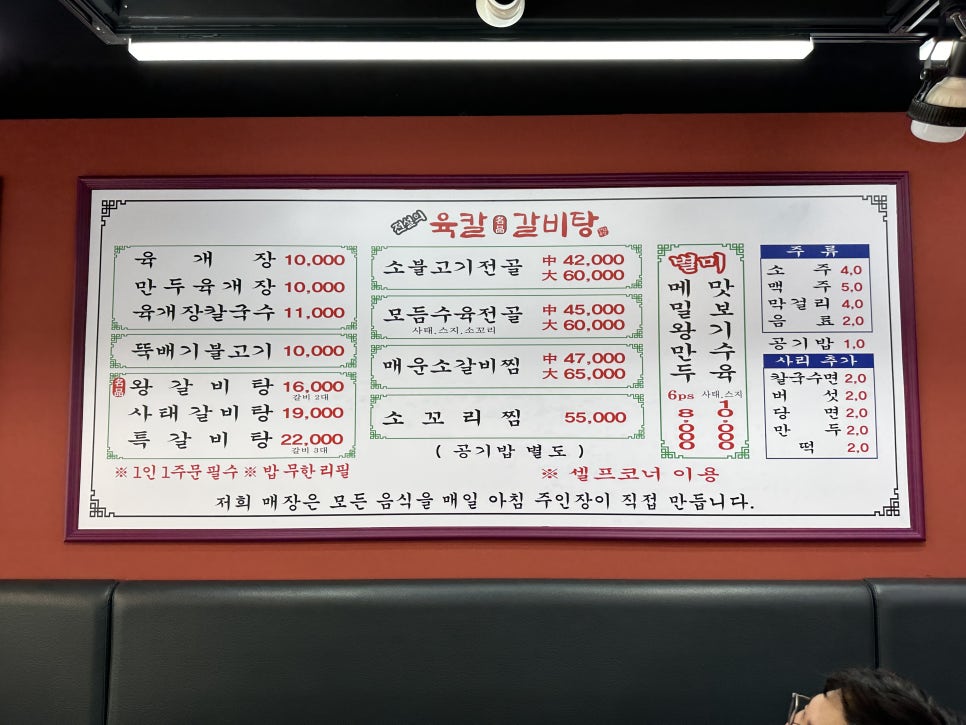 전설의 육칼 名品 갈비탕
육개장 10,000
만두육개장 10,000
육개장칼국수 11,000
뚝배기불고기 10,000
名品 왕갈비탕 16,000
갈비 2대
사태갈비탕 19,000
특갈비탕 22,000
갈비 3대
※ 1인 1주문 필수 ※ 밥 무한리필
소불고기전골 中 42,000
大 60,000
모듬수육전골 中 45,000
사태.스지.소꼬리 大 60,000
매운소갈비찜 中 47,000
大 65,000
소꼬리찜 55,000
( 공기밥 별도 )
별미
메밀왕만두 6ps 8.000
맛보기수육 사태.스지 10.000
주류
소주 4,0
맥주 5,0
막걸리 4,0
음료 2,0
공기밥 1,0
사리 추가
칼국수면 2,0
버섯 2,0
당면 2,0
만두 2,0
떡 2,0
※ 셀프코너 이용
저희 매장은 모든 음식을 매일 아침 주인장이 직접 만듭니다.